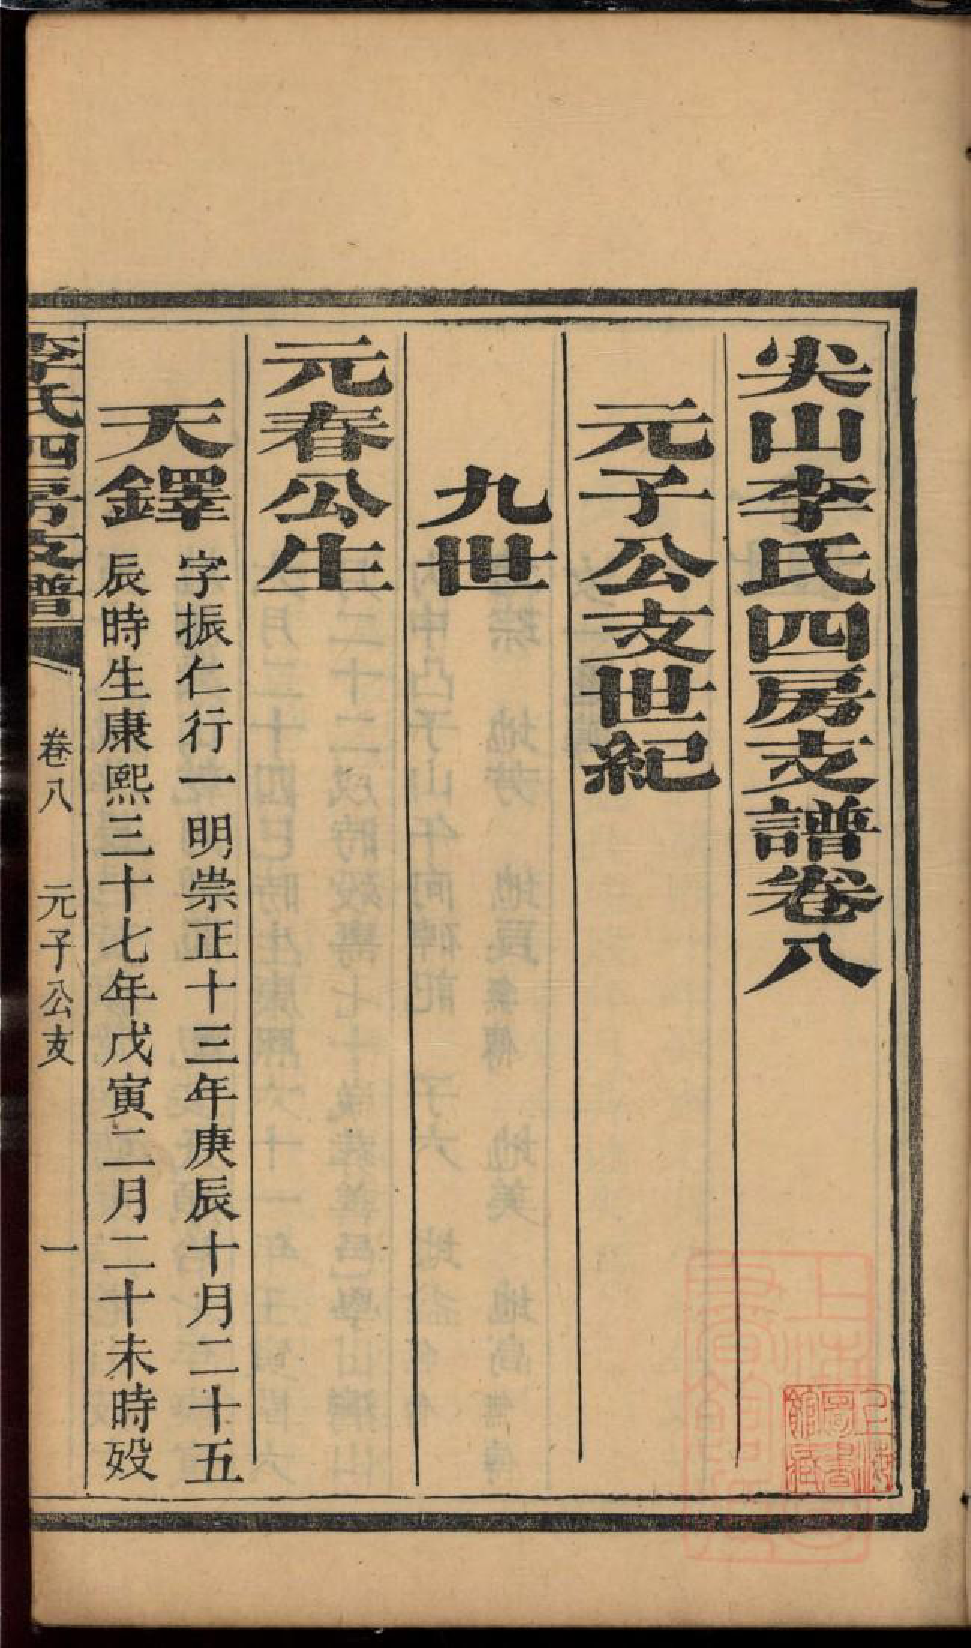 尖山李氏四房支譜卷八
元子公支世紀
九世
元春公生
天鐸
字振仁行一明崇正十三年庚辰十月二十五
辰時生康熙三十七年戊寅二月二十未時歿
李氏四房支譜
卷八
元子公支
一
上海圖書館藏